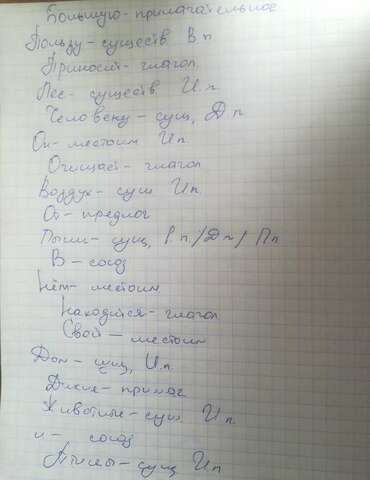 Большую - прилагательное
Пользу - существ. В.п
Приносит - глагол
Лес - существ. И.п.
Человеку - сущ, Д.п
Он - местоим И.п.
Очищает - глагол
Воздух - сущ И.п.
От - предлог
Пыли - сущ, Р.п/Дп/Пп
В - союз
Нём - местоим
Находится - глагол
Свой - местоим
Дом - сущ, И.п.
Дикие - прилаг
Животные - сущ. И.п.
и - союз
Птицы - сущ И.п